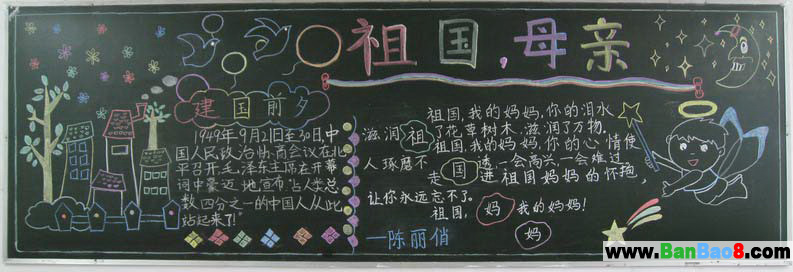 祖国,母亲
建国前夕
1949年9月21日至30日,中
国人民政治协商会议在北
平召开,毛泽东主席在开幕
词中豪迈地宣布"占人类总
数四分之一的中国人从此
站起来了!"
祖国,我的妈妈,你的泪水
滋润祖了花草树木,滋润了万物。
祖国,我的妈妈,你的心情使
人琢磨不国透,一会高兴,一会难过
走进祖国妈妈的怀抱,
让你永远忘不了。
祖国,妈我的妈妈!
妈
—陈丽俏
www.BanBao8.com